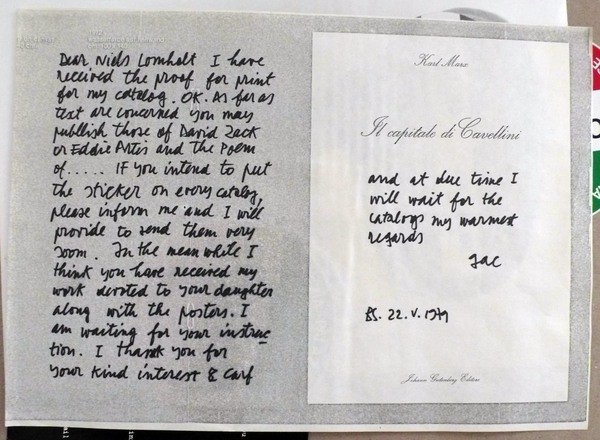 Dear Niels Lomholt I have
received the proof for print
for my catalog. OK. As far as
text are concerned you may
publlish those of David Zack
or Eddie Artis and the Poem
of..... IF you intend to put
the sticker on every catalog,
please inform me and I will
provide to send them very
soom. In the mean while I
think you have received my
work devoted to your daughter
along with the posters. I
am waiting for your instruc
tion. I thank you for
your kind interest & Carf
Karl Marx
Il capitale di Cavellini
and at due time I
will wait for the
catalogs my warmest
regards
GAC
BS. 22. V. 1979
Johann Gutenberg Editore